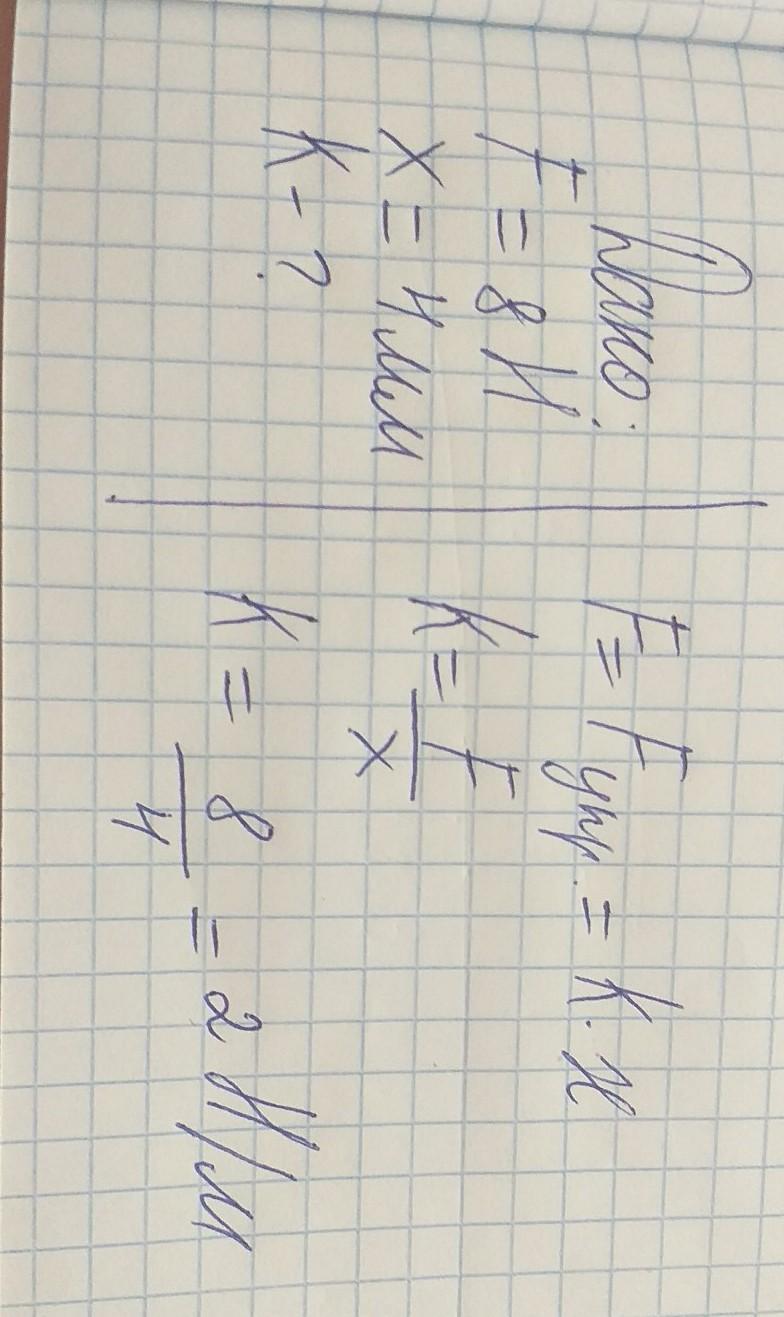 Дано:
F = 8 Н
x = 4 мм
K - ?
F = F упр. = K · x
K = F / x
K = 8 / 4 = 2 Н/м